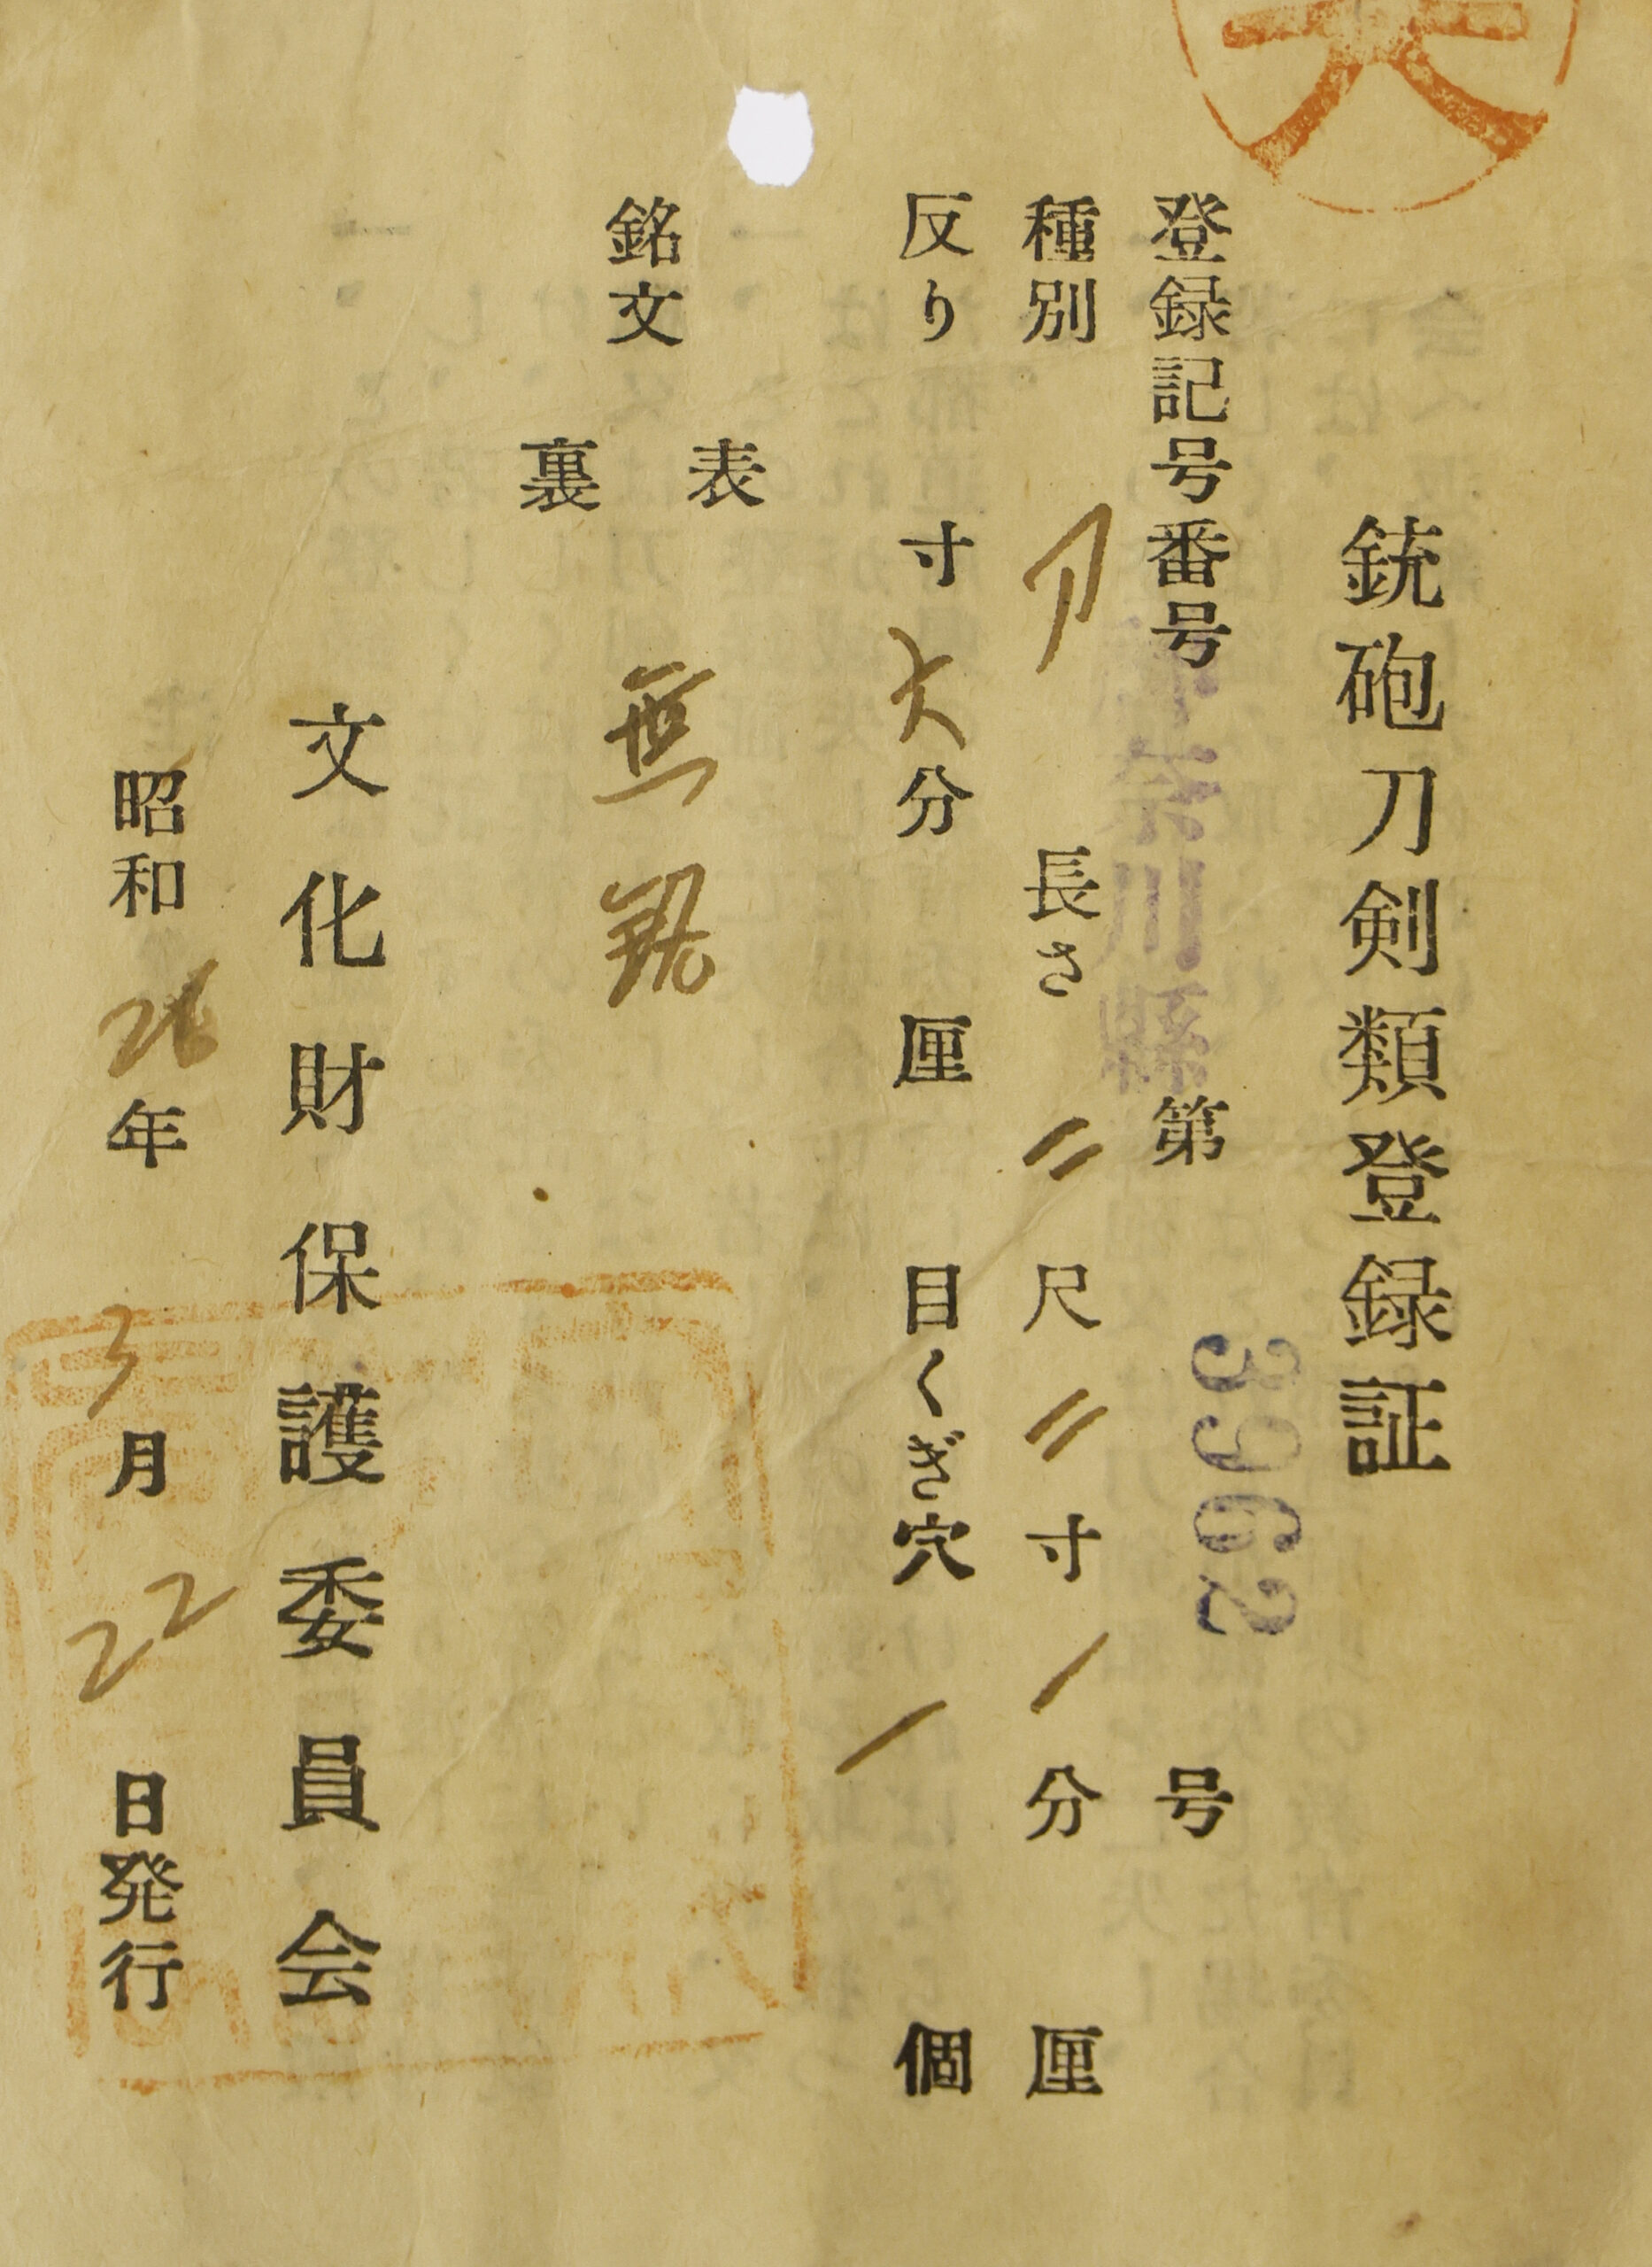 銃砲刀剣類登録証
登録記号番号 神奈川縣 第 3962 号
種別 刀 長さ 二尺 二寸 一分 厘
反り 寸 六分 厘 目くぎ穴 一 個
銘文
表 無銘
裏
文化財保護委員会
昭和 26年 3月 22日発行